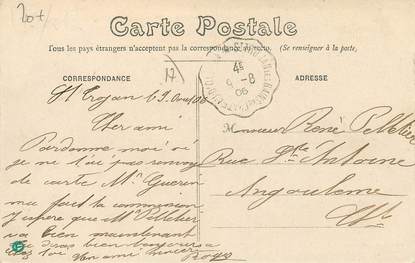 20+
Carte Postale
Tous les pays étrangers n'acceptent pas la correspondance au recto. (Se renseigner à la poste,
CORRESPONDANCE
17
4E
9-8
06
ADRESSE
St Trojan le 9 Aout 06
Cher ami
Monsieur René Pelletier
Pardonne moi si
je ne t'ai pas renvoyé
de carte Me Guerin
Rue St Antoine
ma fait la commission
Angouleme
J'espere que Me Pelletier
va bien maintenant
bien bonjours a
chez toi ton ami
Roger